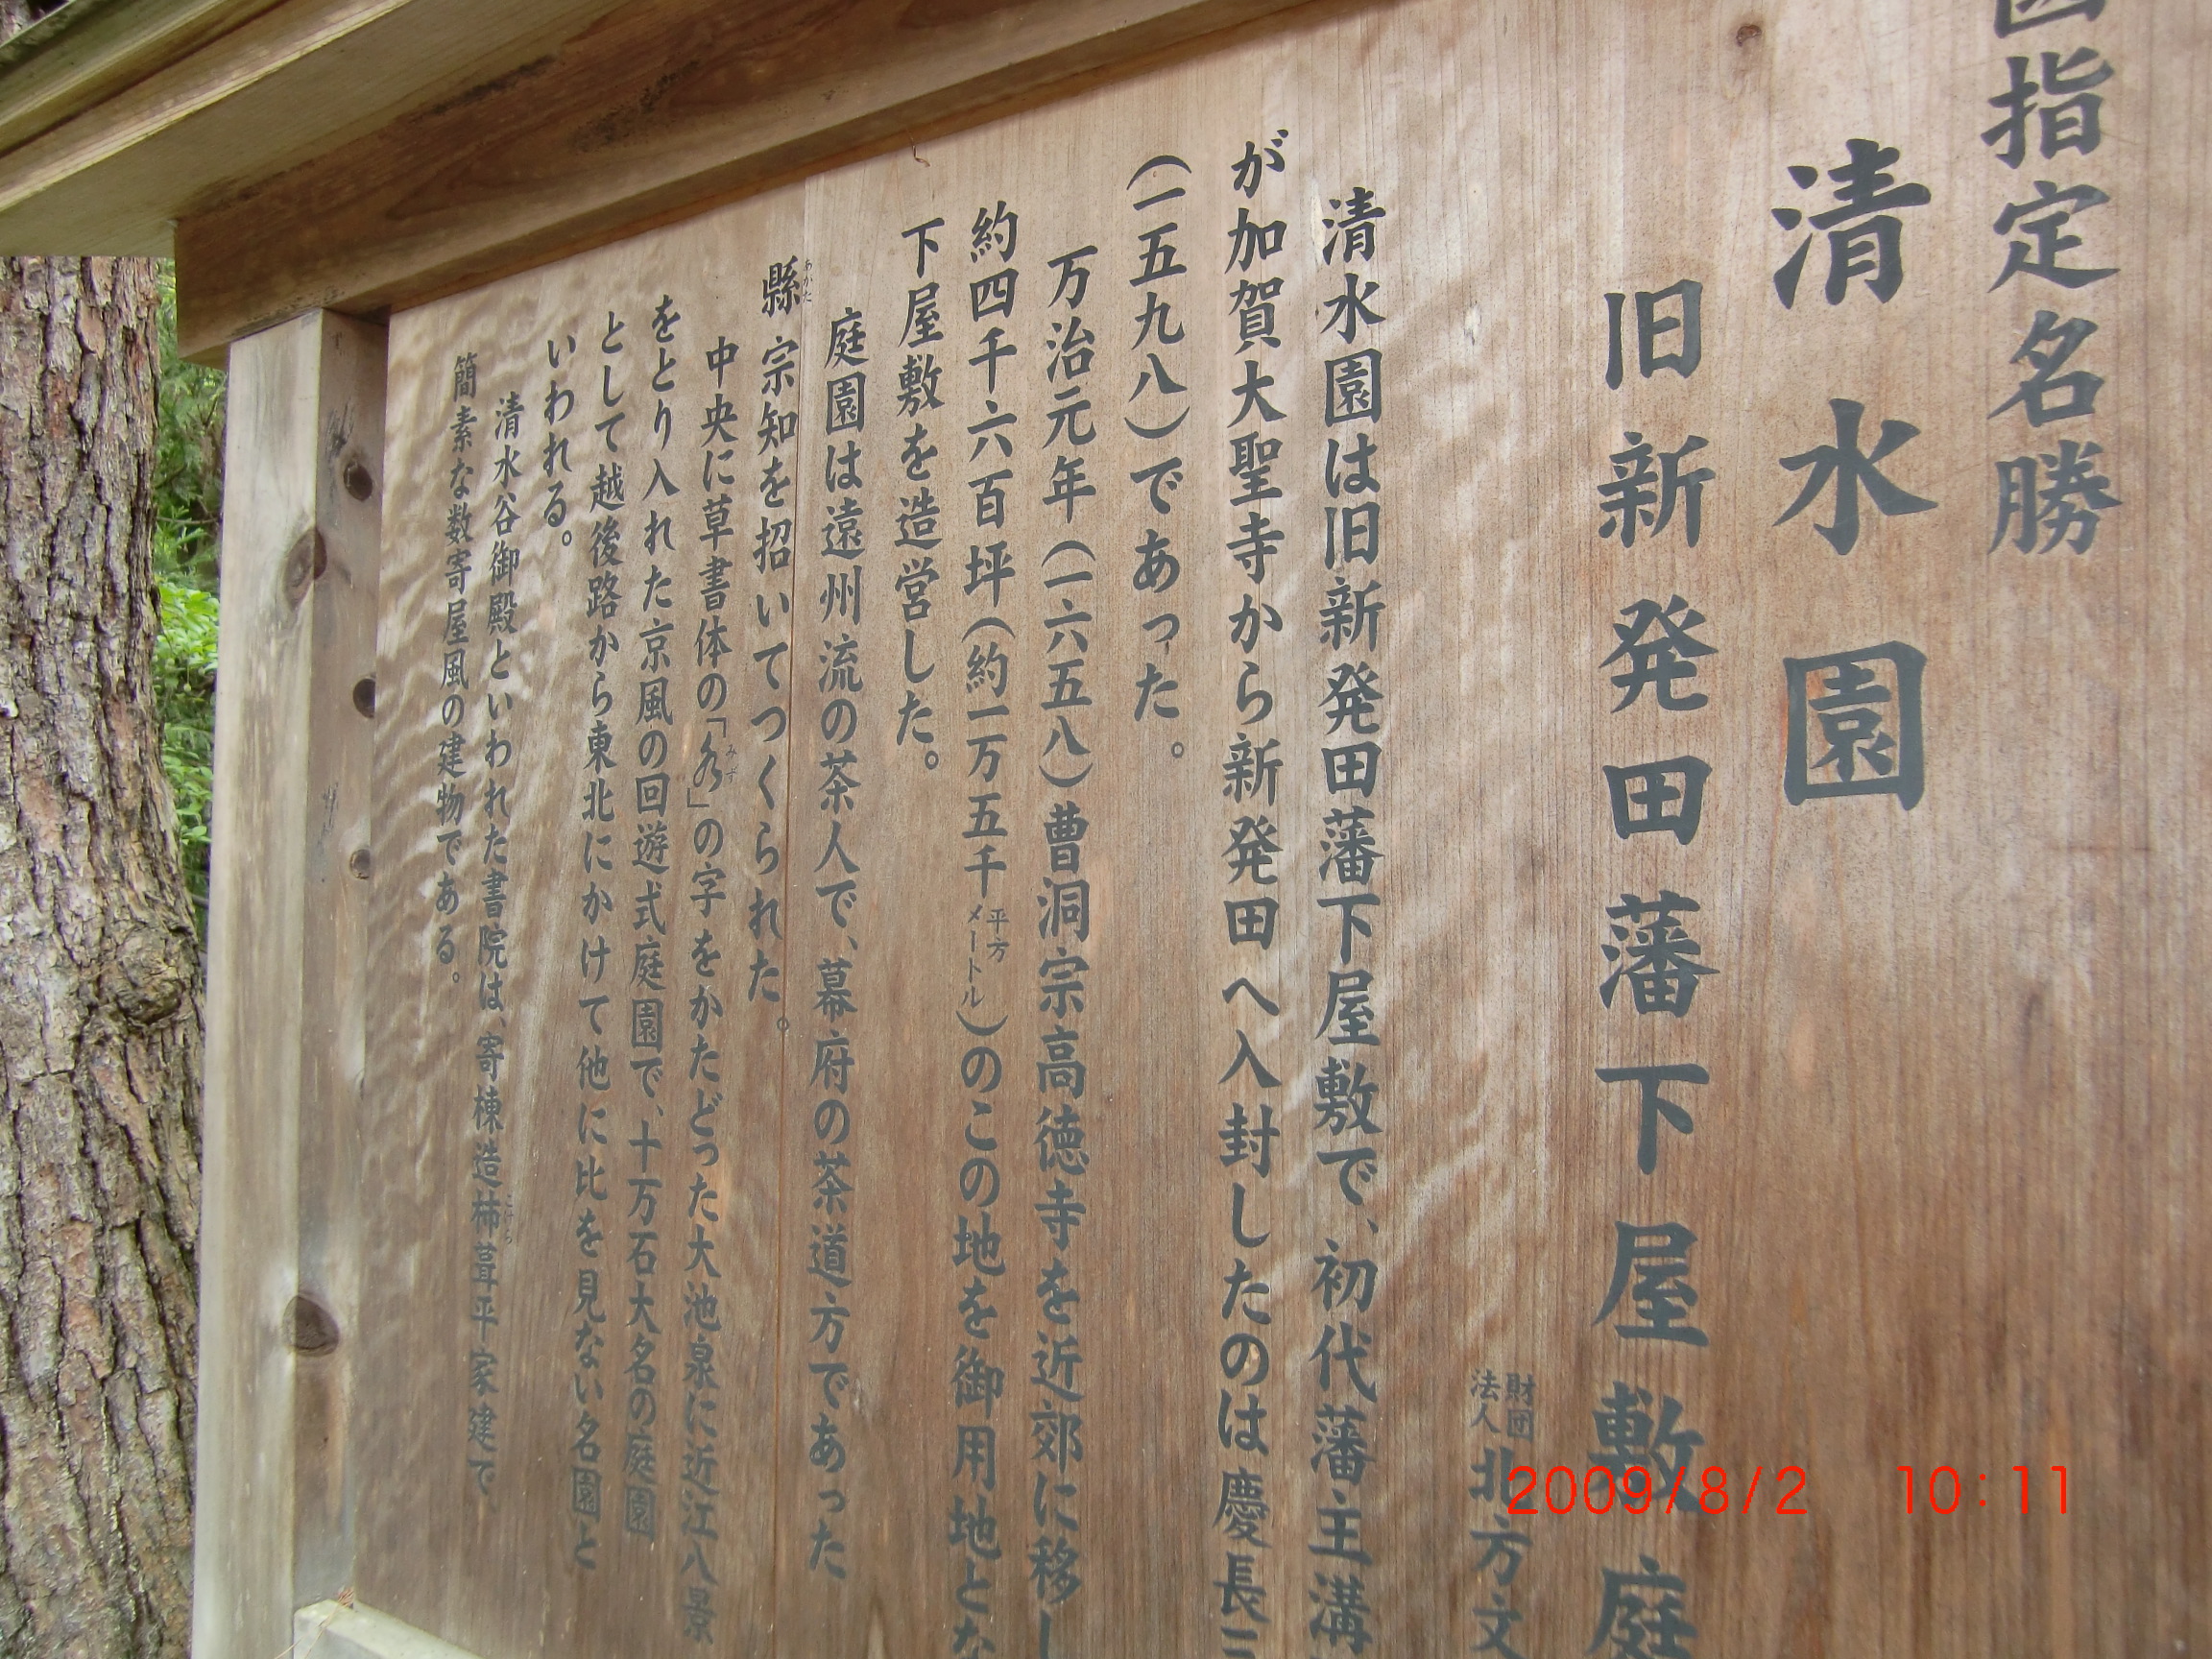 国指定名勝
清水園
旧新発田藩下屋敷庭
財団法人 北方文
清水園は旧新発田藩下屋敷で、初代藩主溝
が加賀大聖寺から新発田へ入封したのは慶長三
(一五九八)であった。
万治元年(一六五八)曹洞宗高徳寺を近郊に移し
約四千六百坪(約一万五千平方メートル)のこの地を御用地とな
下屋敷を造営した。
庭園は遠州流の茶人で、幕府の茶道方であった
縣宗知を招いてつくられた。
あがた
中央に草書体の「水」の字をかたどった大池泉に近江八景
みず
をとり入れた京風の回遊式庭園で、十万石大名の庭園
として越後路から東北にかけて他に比を見ない名園と
いわれる。
清水谷御殿といわれた書院は、寄棟造柿葺平家建で、
こけら
簡素な数寄屋風の建物である。
2009/8/2 10:11